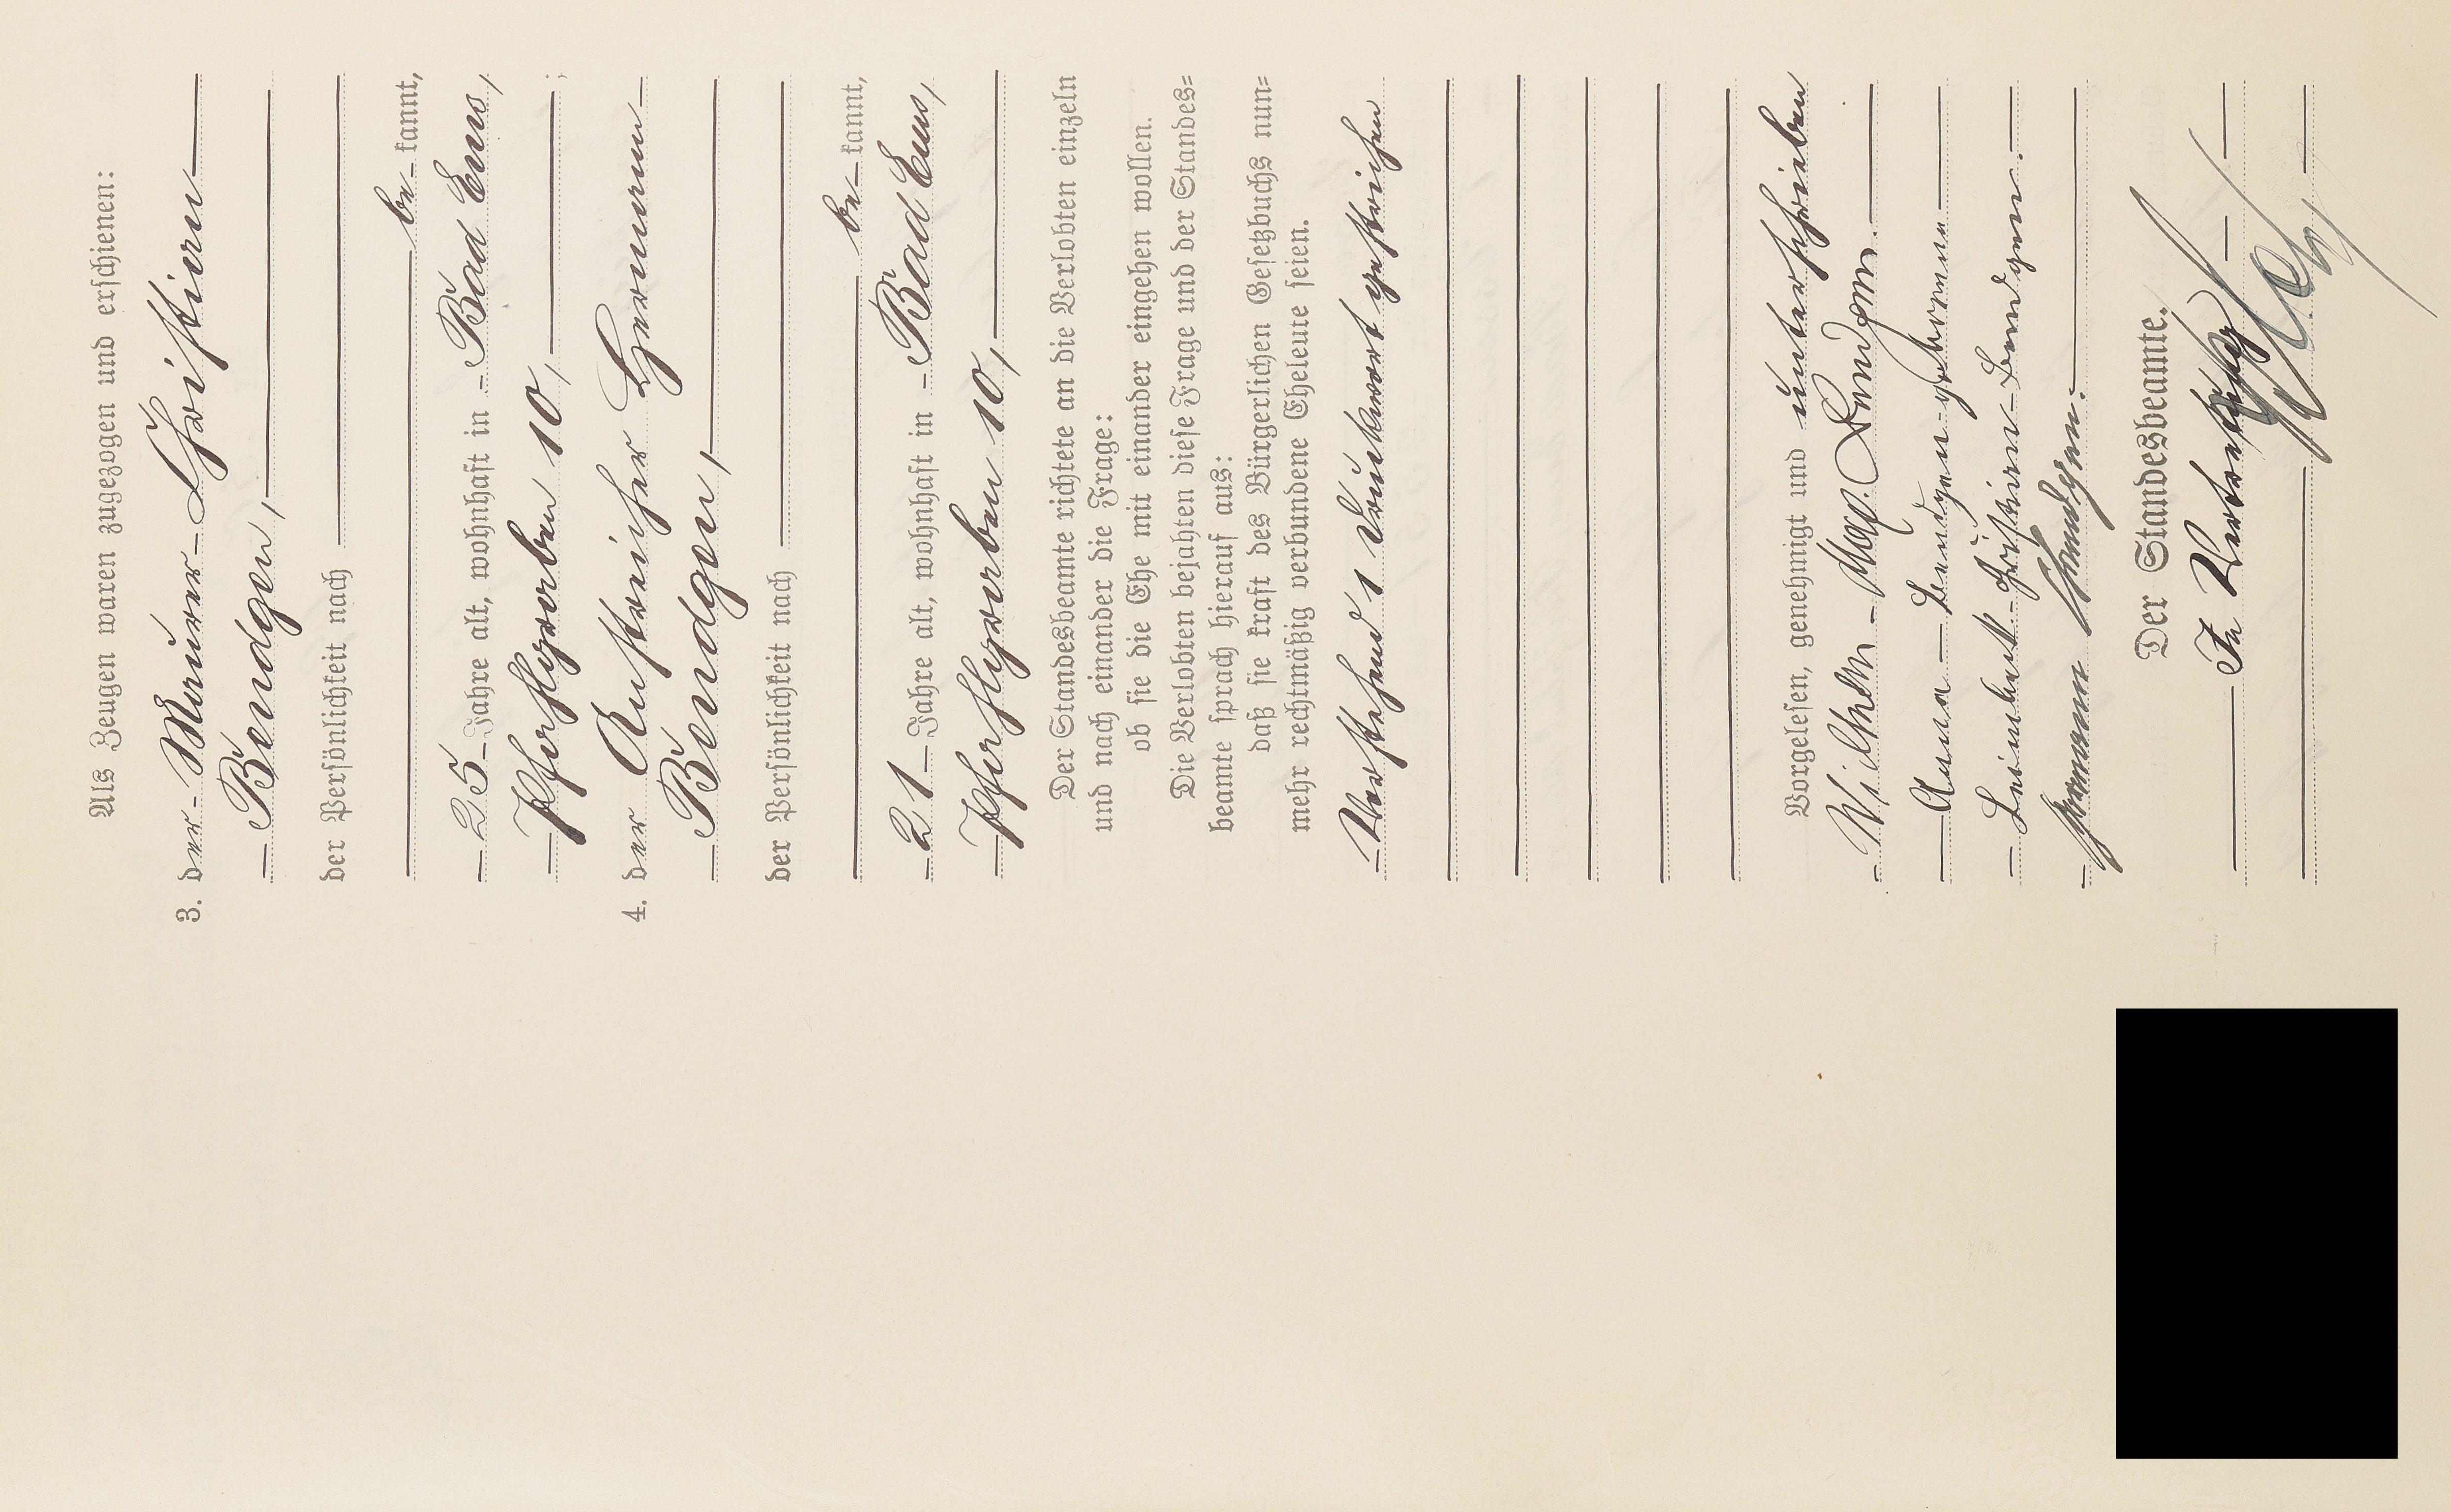 Als Zeugen waren zugezogen und erschienen:
3. der Maurer Christian
Bendgen,
der Persönlichkeit nach
be kannt,
25 Jahre alt, wohnhaft in Bad Ems,
Pfahlgraben 10,
4. der Anstreicher Hermann
Bendgen,
der Persönlichkeit nach
be kannt,
21 Jahre alt, wohnhaft in Bad Ems,
Pfahlgraben 10,
Der Standesbeamte richtete an die Verlobten einzeln
und nach einander die Frage:
ob sie die Ehe mit einander eingehen wollen.
Die Verlobten bejahten diese Frage und der Standes=
beamte sprach hierauf aus:
daß sie kraft des Bürgerlichen Gesetzbuchs nun=
mehr rechtmäßig verbundene Eheleute seien.
Vorstehend 1 Druckwort gestrichen
Vorgelesen, genehmigt und unterschrieben
Wilhelm
Anna Bendgen geborene
Christian Bendgen.
Hermann Bendgen.
Der Standesbeamte.
In Vertretung